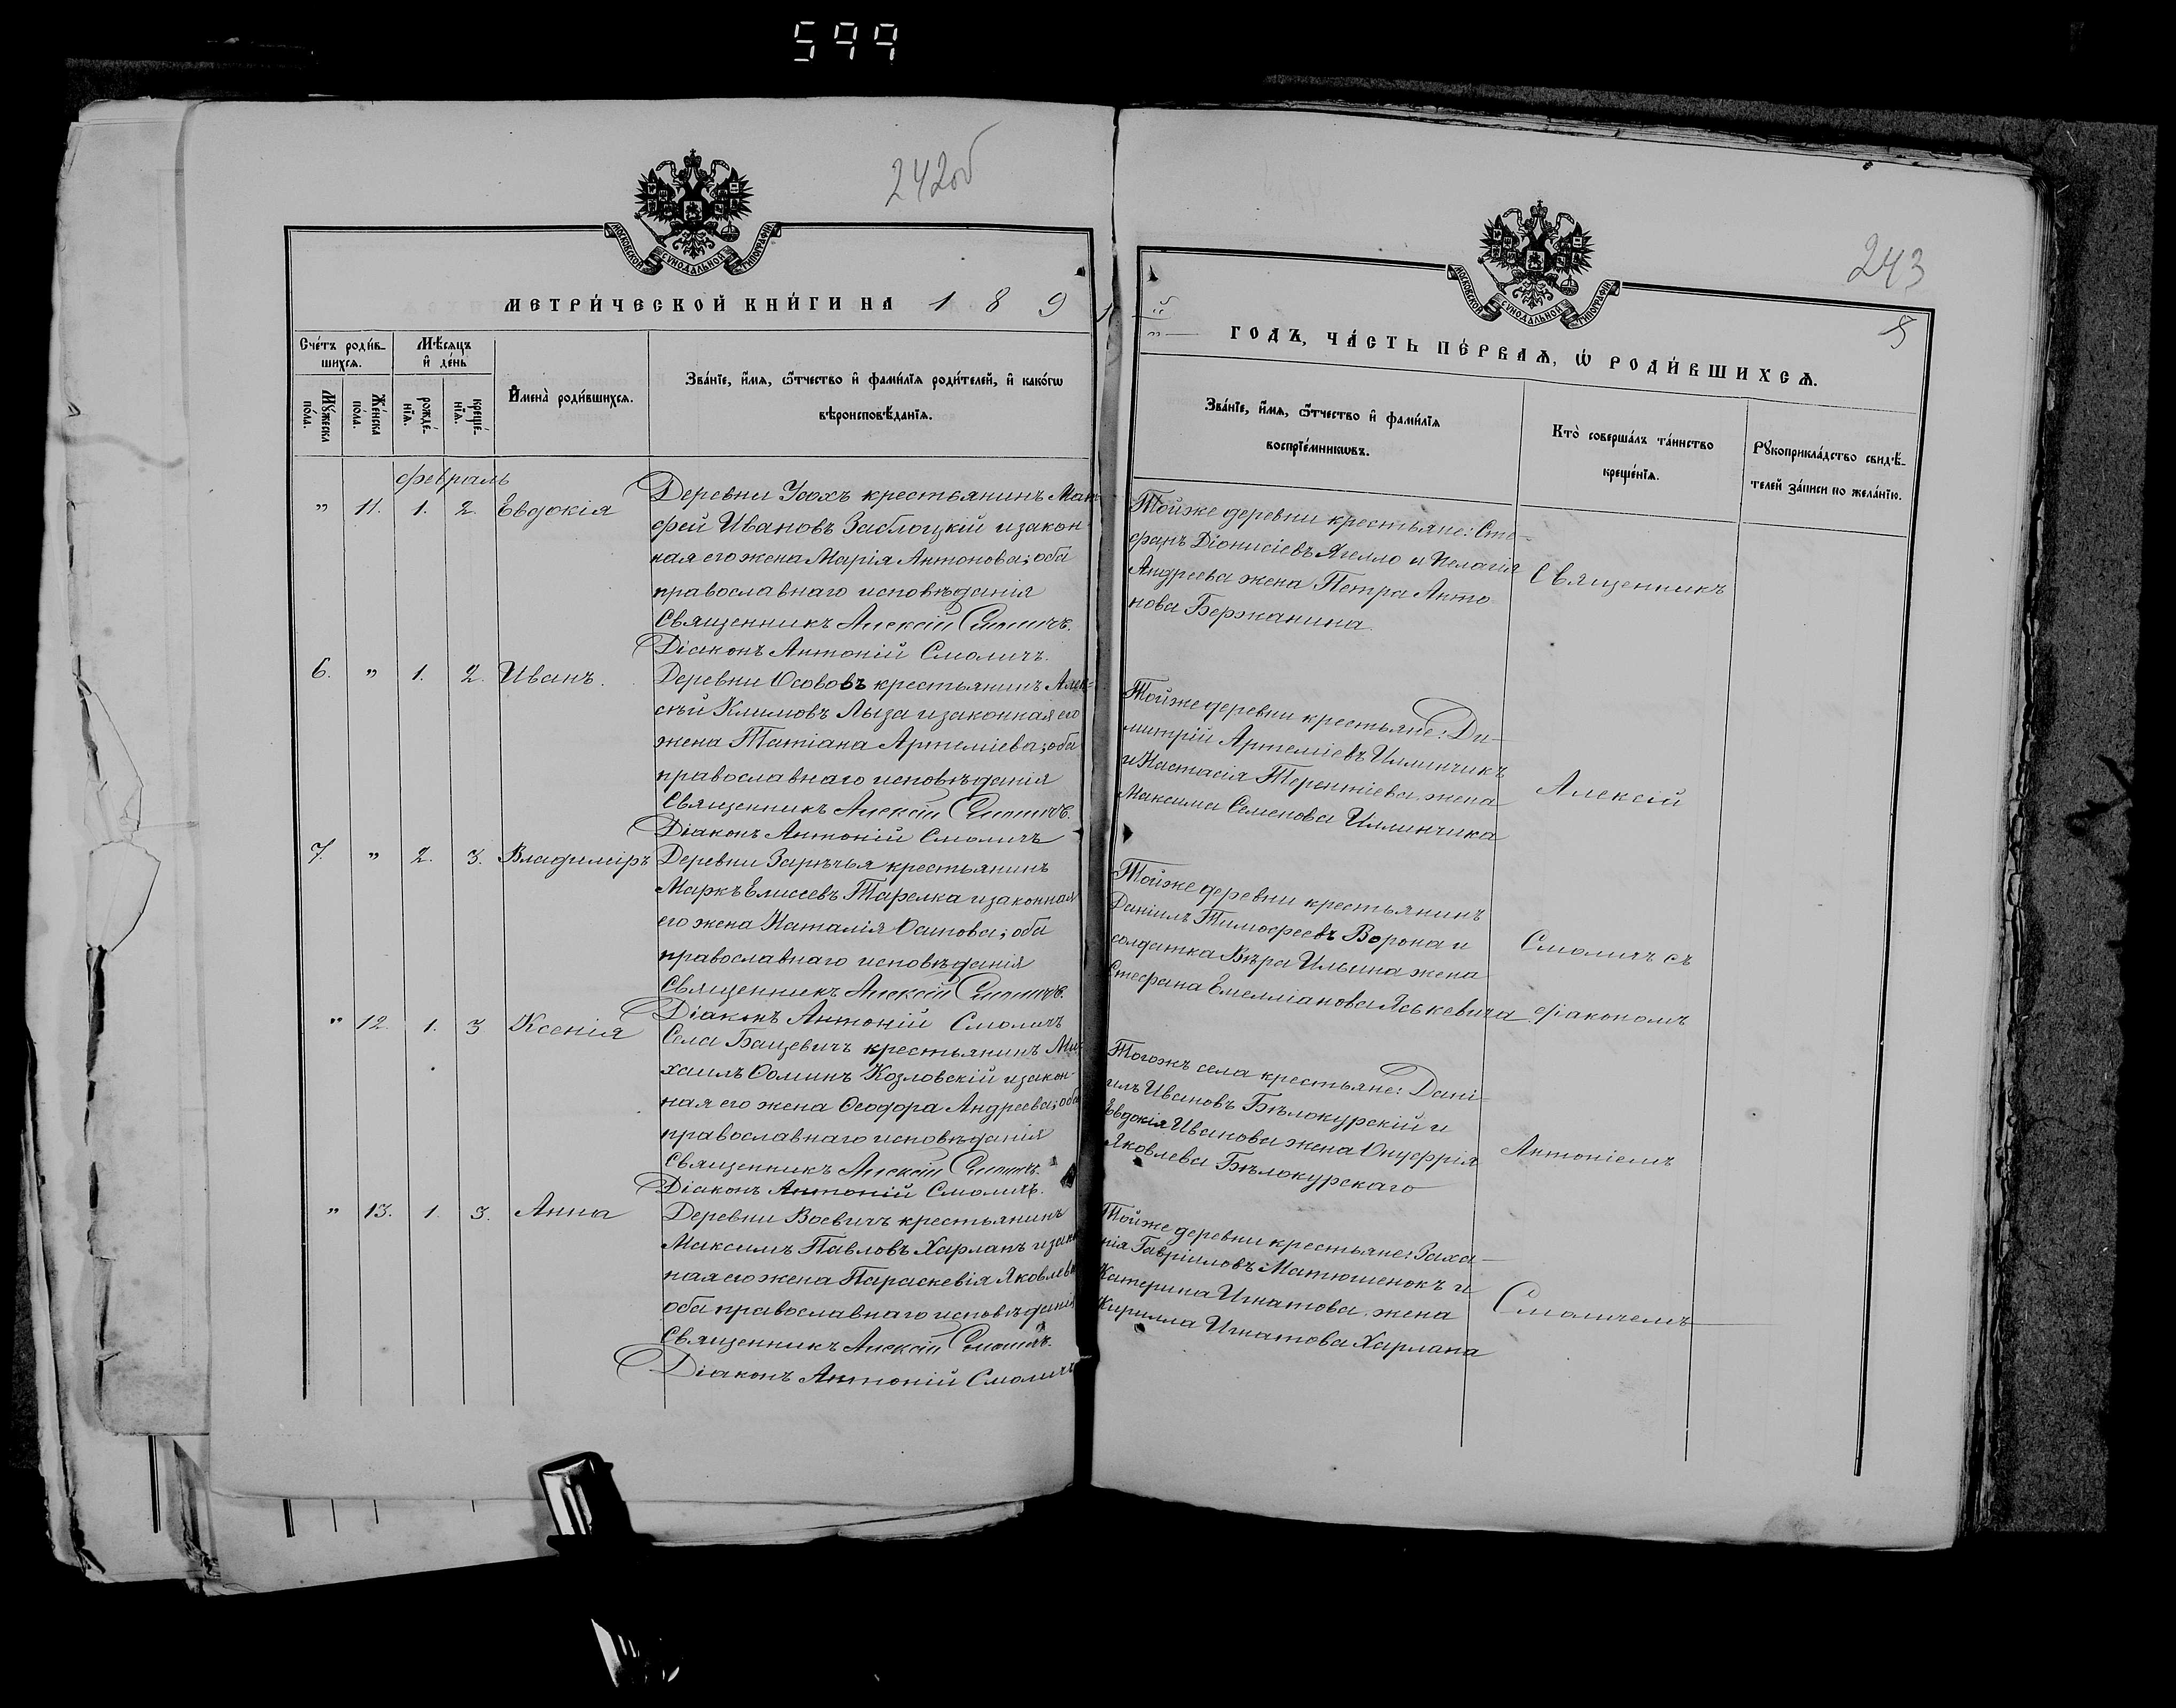 599
242об
МОСКОВСКОЙ СѴНОДАЛЬНОЙ ТИПОГРАФІИ
МЕТРИ́ЧЕСКОЙ КНИ́ГИ НА 1 8 9
Сче́тъ роди́в-
шихсѧ.
Мѣ́сѧцъ
и҆ де́нь
Мꙋ́жеска
по́ла.
Же́нска
по́ла.
рожде́-
нїѧ.
креще́-
нїѧ.
И҆мена̀ роди́вшихсѧ.
Зва́нїе, и҆́мѧ, ѻ҆́тчество и҆ фамѝлїѧ роди́телей, и҆ како́гѡ
вѣроисповѣ́данїѧ.
февраль
" 11. 1. 2. Евдокія
Деревни Уохъ крестьянинъ Мат-
фей Ивановъ Заблоцкій и закон
ная его жена Марія Антонова; оба
православнаго исповѣданія
Священникъ Алексій Смоличъ.
Діаконъ Антоній Смоличъ.
6. " 1. 2. Иванъ.
Деревни Осововъ крестьянинъ Алек-
сѣй Климовъ Лыза и законная его
жена Татіана Артеміева; оба
православнаго исповѣданія
Священникъ Алексій Смоличъ.
Діаконъ Антоній Смоличъ
7. " 2. 3. Владиміръ
Деревни Зарѣчья крестьянинъ
Маркъ Елисеевъ Тарелка и законная
его жена Наталія Осипова; оба
православнаго исповѣданія
Священникъ Алексій Смоличъ.
Діаконъ Антоній Смоличъ
" 12. 1. 3 Ксенія
Села Бацевичъ крестьянинъ Ми-
хаилъ Ѳоминъ Козловскій и закон-
ная его жена Ѳеодора Андреева; оба
православнаго исповѣданія
Священникъ Алексій Смоличъ.
Діаконъ Антоній Смоличъ.
" 13. 1. 3. Анна
Деревни Воевичъ крестьянинъ
Максимъ Павловъ Харланъ и закон
ная его жена Параскевія Яковлева
оба православнаго исповѣданія
Священникъ Алексій Смоличъ.
Діаконъ Антоній Смоличъ
243
5
МОСКОВСКОЙ СѴНОДАЛЬНОЙ ТИПОГРАФІИ
ГОДЪ, ЧА́СТЬ ПЕ́РВАѦ, Ѡ҆ РОДИ́ВШИХСѦ.
Зва́нїе, и҆́мѧ, ѻ҆́тчество и҆ фамѝлїѧ
воспрїе́мникѡвъ.
Кто̀ соверша́лъ та́инство
креще́нїѧ.
Рꙋкоприкла́дство свидѣ́-
телей за́писи по жела́нїю.
Тойже деревни крестьяне: Сте-
фанъ Діонисіевъ Ягелло и Пелагія
Андреева жена Петра Анто
нова Бержанина.
Священникъ
Тойже деревни крестьяне: Ди-
митрій Артеміевъ Илминчикъ
и Настасія Терентіева, жена
Максима Семенова Илминчика
Алексій
Тойже деревни крестьянинъ
Даніилъ Тимофеевъ Ворона и
солдатка Вѣра Ильина жена
Стефана Емелліанова Яськевича
Смоличъ съ
діакономъ
Тогожъ села крестьяне: Дані-
илъ Ивановъ Бѣлокурскій и
Евдокія Иванова жена Онуфрія
Яковлева Бѣлокурскаго
Антоніемъ
Тойже деревни крестьяне: Заха-
рія Гавріиловъ Матюшенокъ и
Катерина Игнатова, жена
Кирилла Игнатова Харлана
Смоличемъ